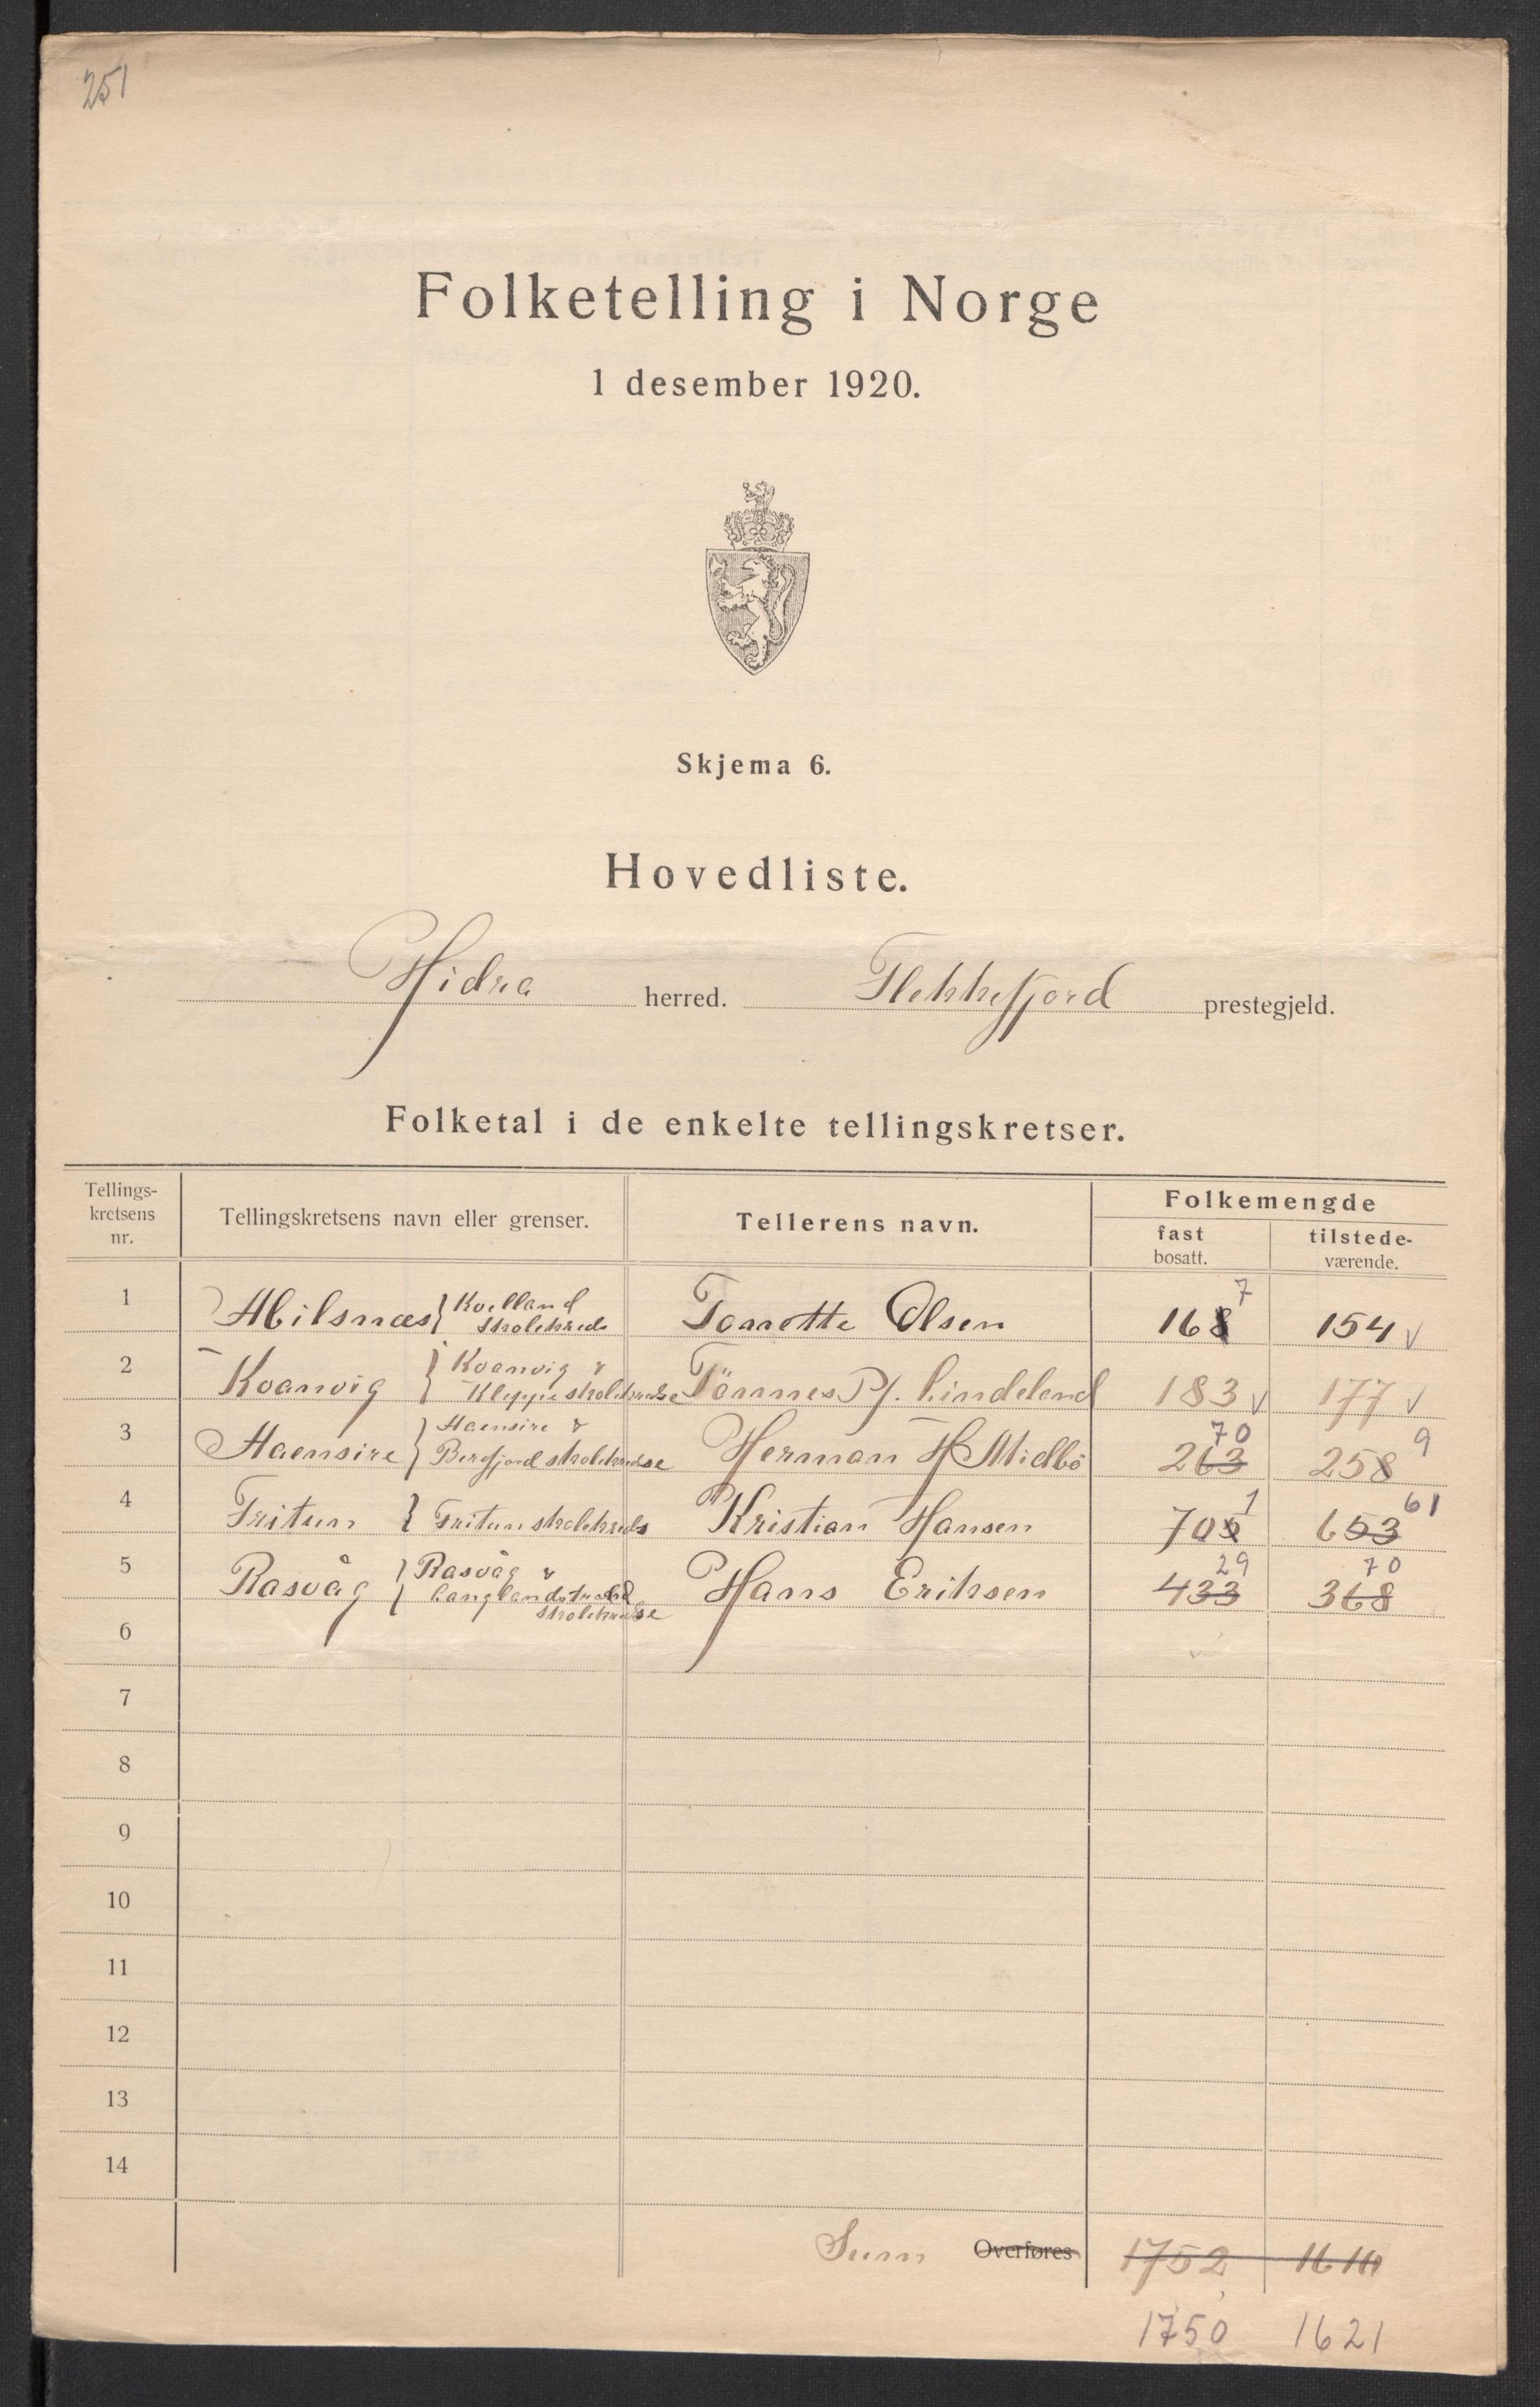 251
Folketelling i Norge
1 desember 1920.
Skjema 6.
Hovedliste.
Hidra herred. Flekkefjord prestegjeld.
Folketal i de enkelte tellingskretser.
Tellings-kretsens nr. Tellingskretsens navn eller grenser. Tellerens navn. Folkemengde
fast bosatt. tilstede-værende.
1 Abilsnæs } Kvelland Skolekreds Tonette Olsen 168 7 154 √
2 Kvanvig { Kvanvig & Kleppe skolekredse Tönnes P. Lindeland 183 √ 177 √
3 Haensire } Haensire & Bergfjord skolekredse Herman H Midbö 263 70 258 9
4 Fritun } Fritun skolekreds Kristian Hansen 705 1 653 61
5 Rasvåg } Rasvåg & skolekredse Hans Eriksen 433 29 368 70
6
7
8
9
10
11
12
13
14
Sum Overføres 1752 1610
1750 1621